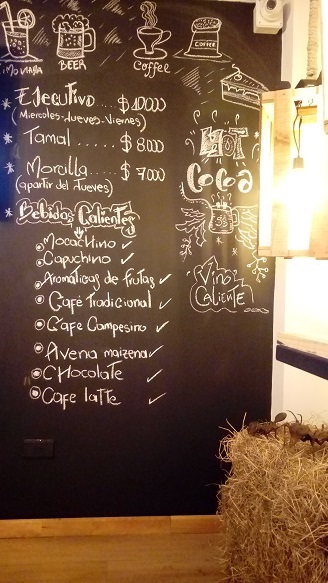 Limonada
BEER
Coffee
COFFEE
Ejecutivo.... $10.000
(Miercoles-Jueves-Viernes)
Tamal..... $8.000
Morcilla.... $7.000
(apartir del Jueves)
Bebidas Calientes
Mocachino ✓
Capuchino ✓
Aromáticas de frutas ✓
Café Tradicional ✓
Cafe Campesino ✓
Avena maizena ✓
CHocolate ✓
Cafe latte ✓
HOT
Cocoa
Vino
Caliente